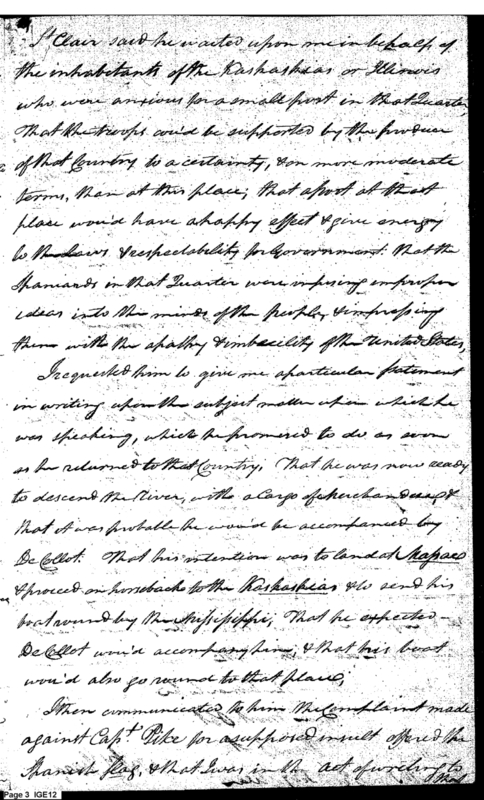 St Clair said he waited upon me in behalf of
the inhabitants of the Kaskaskias or Illinois
who were anxious for a small post in that Quarter
That the troops could be supported by the produce
of that Country to a certainty, & on more moderate
terms, than at this place; that a post at that
place would have a happy effect & give energy
to the Laws & respectability for Government. That the
Spaniards in that Quarter were infusing improper
ideas into the minds of the people, & impressing
them with the apathy & imbecility of the United States,
I requested him to give me a particular statement
in writing upon the subject matter upon which he
was speaking, which he promised to do as soon
as he returned to that Country. That he was now ready
to descend the River, with a Cargo of Merchandise, &
that it was probable he would be accompanied by
De Collot. That his intention was to land at Massac
& proceed on horseback to the Kaskaskias & to send his
boat round by the Mississippi, That he expected
De Collot would accompany him, & that his boat
would also go round to that place;
I then communicated to him the Complaint made
against Capt. Pike for a supposed insult offered the
Spanish flag, & that I was in the act of writing to
that
Page 3 IGE12